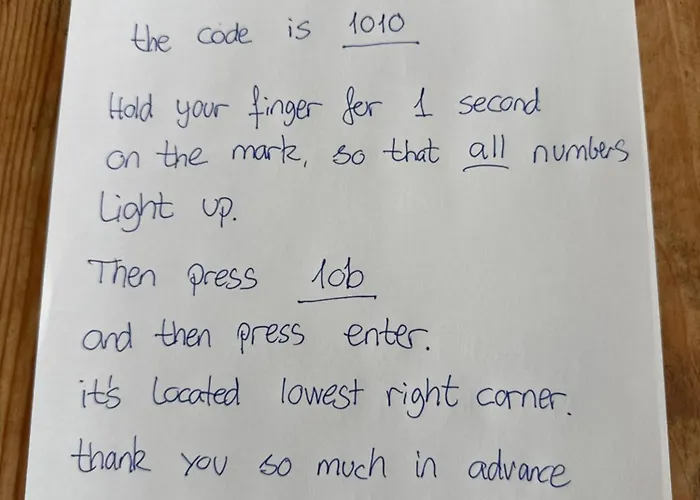 the code is 1010
Hold your finger for 1 second
on the mark, so that all numbers
Light up.
Then press 10b
and then press enter.
it's Located lowest right corner.
thank you so much in advance